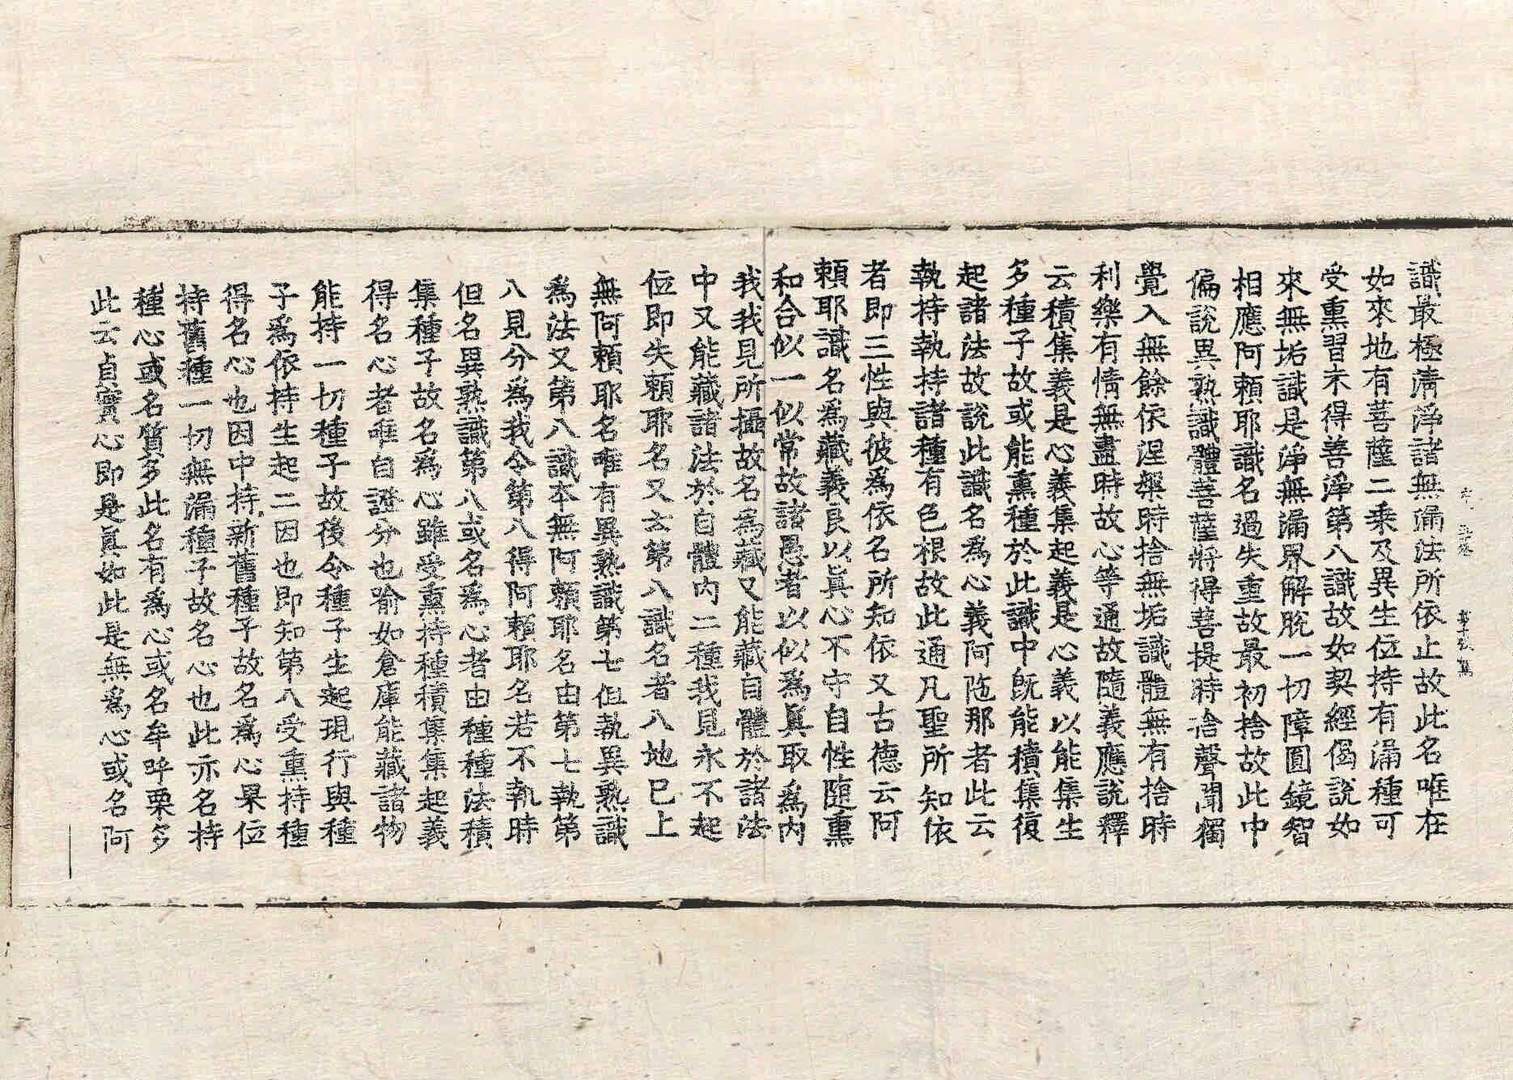 識最極清淨諸無漏法所依止故此名唯在
如來地有菩薩二乘及異生位持有漏種可
受熏習未得善淨第八識故如契經偈說如
來無垢識是淨無漏界解脫一切障圓鏡智
相應阿賴耶識名過失重故最初捨故此中
偏說異熟識體菩薩將得菩提時捨聲聞獨
覺入無餘依涅槃時捨無垢識體無有捨時
利樂有情無盡時故心等通故隨義應說釋
云積集義是心義集起義是心義以能集生
多種子故或能熏種於此識中旣能積集復
起諸法故說此識名爲心義阿陁那者此云
執持執持諸種有色根故此通凡聖所知依
者即三性與彼爲依名所知依又古德云阿
賴耶識名爲藏義良以眞心不守自性隨熏
和合似一似常故諸愚者以似爲眞取爲內
我我見所攝故名爲藏又能藏自體於諸法
中又能藏諸法於自體內二種我見永不起
位即失賴耶名又云第八識名者八地巳上
無阿賴耶名唯有異熟識第七但執異熟識
爲法又第八識本無阿賴耶名由第七執第
八見分爲我令第八得阿賴耶名若不執時
但名異熟識第八或名爲心者由種種法積
集種子故名爲心雖受熏持種積集集起義
得名心者唯自證分也喻如倉庫能藏諸物
能持一切種子故後令種子生起現行與種
子爲依持生起二因也即知第八受熏持種
得名心也因中持新舊種子故名爲心果位
持舊種一切無漏種子故名心也此亦名持
種心或名質多此名有爲心或名牟呼栗多
此云貞實心即是眞如此是無爲心或名阿